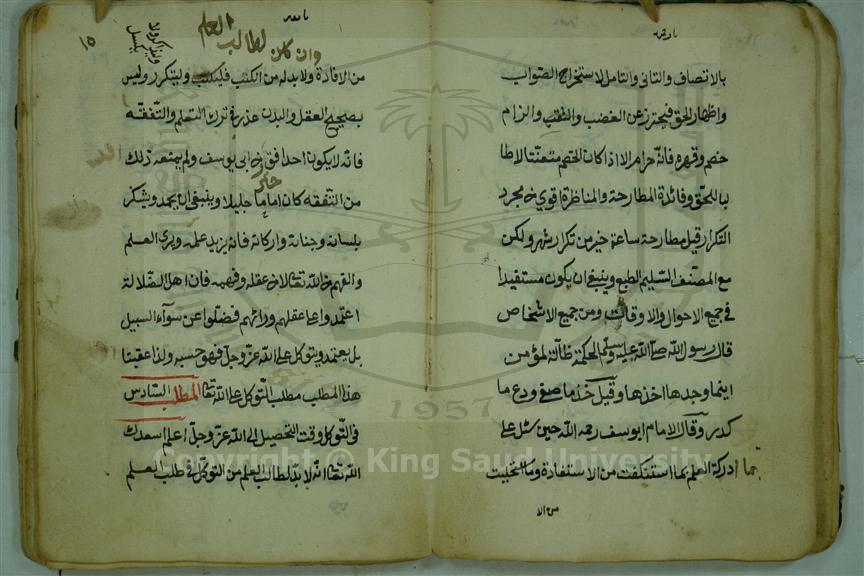 بالانصاف والتانى والتامل لاستخراج الصّواب
واظهار الحق فيحترز عن الغضب والشغب والزام
خصم وقهره فانّه حرام الا اذا كان الخصم متعنّتا لا طا
بالحقّ وفائدة المطارحة والمناظرة اقوى من مجرد
التكرار قيل مطارحة ساعة خير من تكرار شهر ولكن
مع المصنف السّليم الطبع وينبغى ان يكون مستفيدا
فى جميع الاحوال والاوقات ومن جميع الاشخاص
قال رسول الله صلّى الله عليه وسلم الحكمة ظالّة لمؤمن
اينما وجدها اخذها وقيل خذ ما صفى ودع ما
كدر وقال الامام ابو يوسف رحمه الله حين سئل على
ادركة العلم بما استنكفت من الاستفادة وما بخليت
بما
من الا
وان كان لطالب العلم
١٥
من الافادة ولا بد له من الكتب فليكتب وليتكرر وليس
بصحيح العقل والبدن عذر فى ترك التعلم والتّفقّه
فانّه لا يكون احد افقر من ابى يوسف ولم يمنعه ذلك
من التّفقه كان اماما جليلا وينبغى ان يحمد ويشكر
بلسانه وجنانه واركانه فانه يزيد علمه ويرى العلم
والفهم من الله تعالى لا من عقله وفهمه فان اهل الضّلالة
اعتمدوا على عقلهم ورائهم فضلّوا عن سوآء السبيل
بل يعتمد ويتوكل على الله عزّ وجلّ فهو حسبه ولذا عقبنا
هذا المطلب مطلب التّوكل على الله تعالى المطلب السّادس
فى التّوكل وقت التحصيل الى الله عزّ وجلّ اعلم اسعدك
الله تعالى انّه لا بدّ لطالب العلم من التوكل فى طلب العلم
1957
Copyright © King Saud University